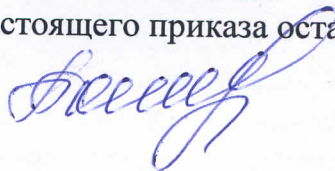 стоящего приказа оста